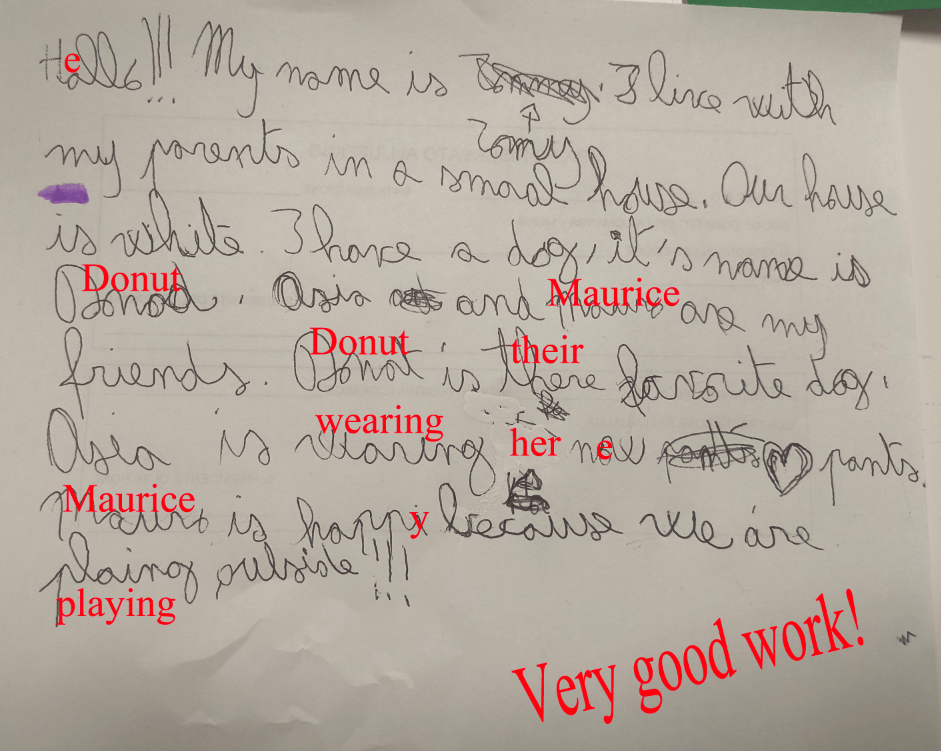 Hallo!!! My name is Tommy. I live with
e
Tomy
my parents in a smaal house. Our house
is white. I have a dog, it's name is
Donut Maurice
Donod. Asia and Mauro are my
Donut their
friends. Donot is there favorite dog.
wearing
Asia is wearing her new pants pants.
e
Maurice
Mauro is happi because we are
y
plaing outside!!!
playing
Very good work!